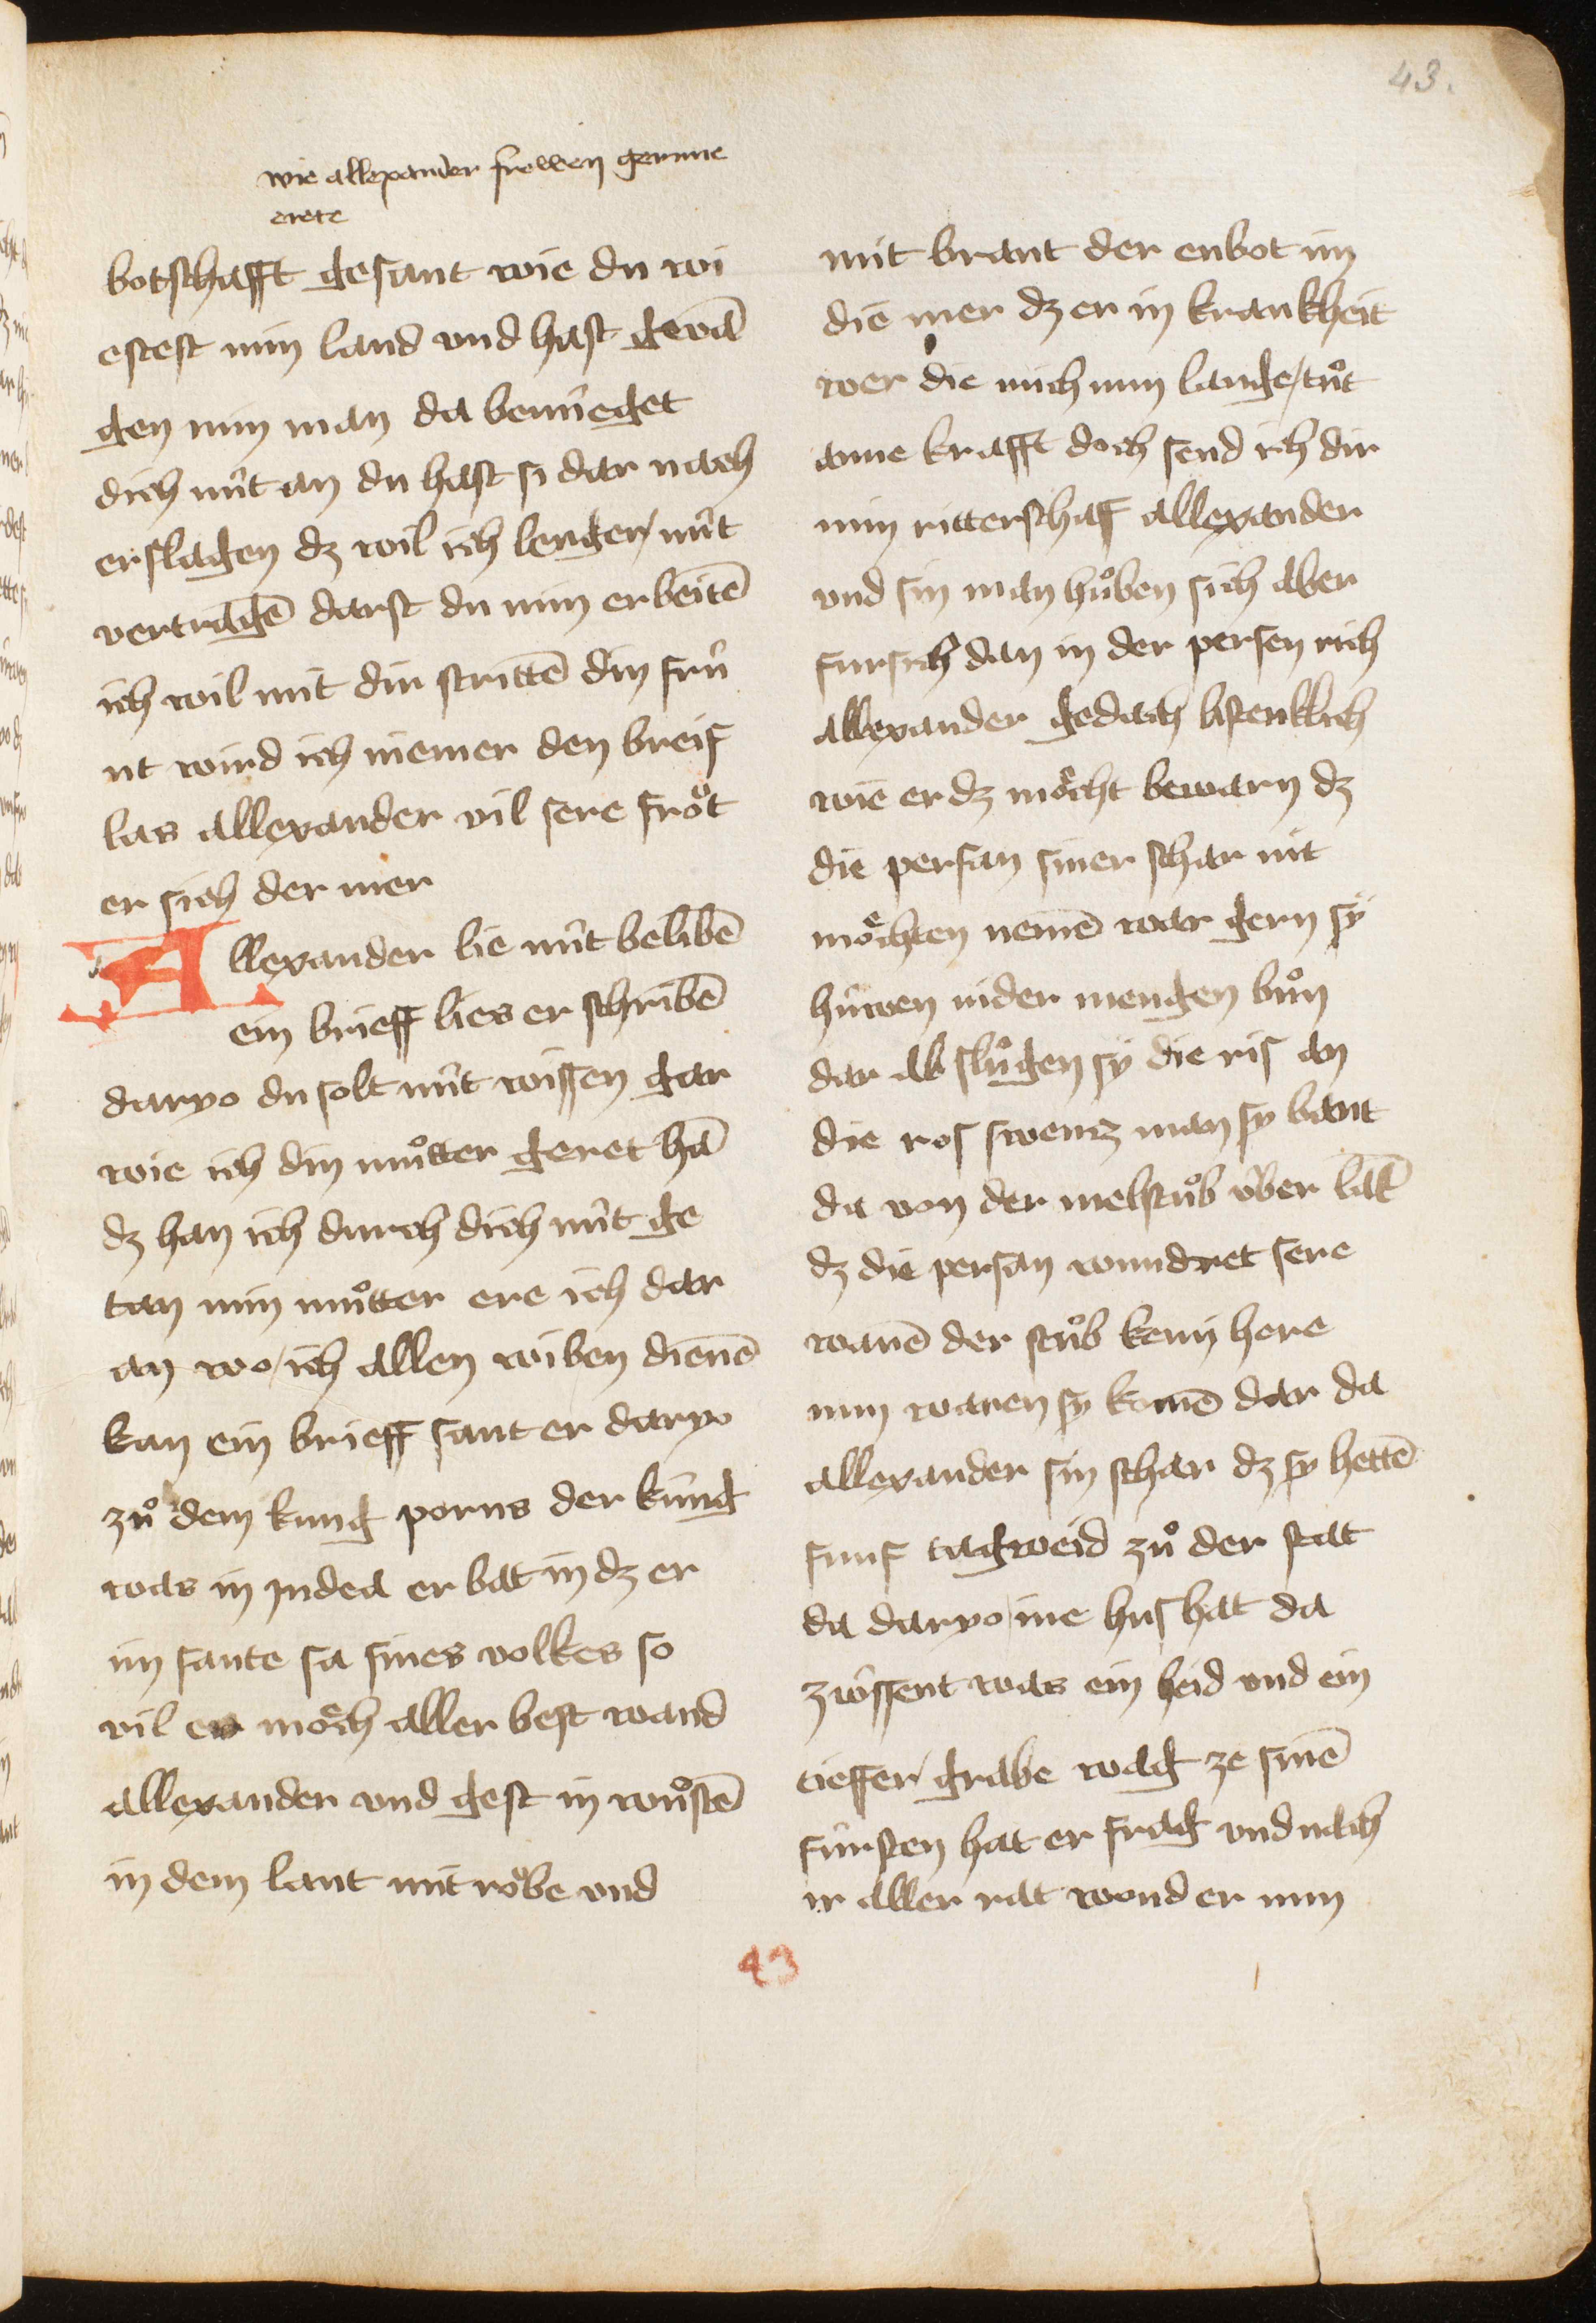 43.
wie allexander frowen gerne
erete
botschafft gesant wie du wi
estest min land vnd hast gevā
gen min man da benu̍eget
dich nu̍t an du hast si dar nach
erslagen dz wil ich lenger nu̍t
vertragē darst du min erbeitē
ich wil mit dir strittē din fru̍
nt wird ich niemer den breif
las allexander vil sere fro̍t
er sich der mer
Allexander lie nu̍t belibē
ein brieff lies er schribē
daryo du solt nu̍t wissen gar
wie ich din mu̍tter geret hā
dz han ich durch dich nu̍t ge
tan min mu̍tter ere ich dar
an wo ich allen wiben dienē
kan ein brieff sant er daryo
zů dem kung porus der ku̍ng
was in jndea er bat in dz er
im sante sa sines volkes so
vil er möch aller best wand
allexander vnd gest in wůstē
in dem lant mit röbe vnd
mit brant der enbot im
die mer dz er in krankheit
wer die mich nun lange tůt
anne krafft doch send ich dir
min ritterschaf allexander
vnd sin man hůben sich aber
fursich dan in der persen rich
allexander gedach listenklich
wie er dz möcht bewarn dz
die persan siner schar nit
möchten nemē war gern sÿ
hu̍wen nider mengen bůn
dar ab slůgen sÿ die ris an
die ros swencz man sy bant
da von der melstůb v̍ber lāt
dz die persan wundret sere
wanē der stůb kem here
nun waren sy komē dar da
allexander sin schar dz sy hettē
funf tagweid zů der stat
da daryo ine hus hat da
zwu̍ssent was ein heid vnd ein
tieffer grabe wag ze sinē
fu̍rsten hat er frag vnd nach
ir aller rat wond er nun
43